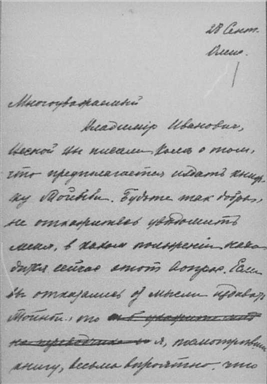 28 Сент.
Многоуважаемый
Владимір Ивановичъ,
Весной Вы писали Коле о том,
что предполагается издать книж-
ку Тойнби. Будьте так добры,
не откажитесь увѣдомить
меня, в каком положеніи нахо-
дится сейчас этот вопрос. Если
вы отказались от мысли издавать
Тойнби, то
я, пожалуй
книгу, весьма вѣроятно, что